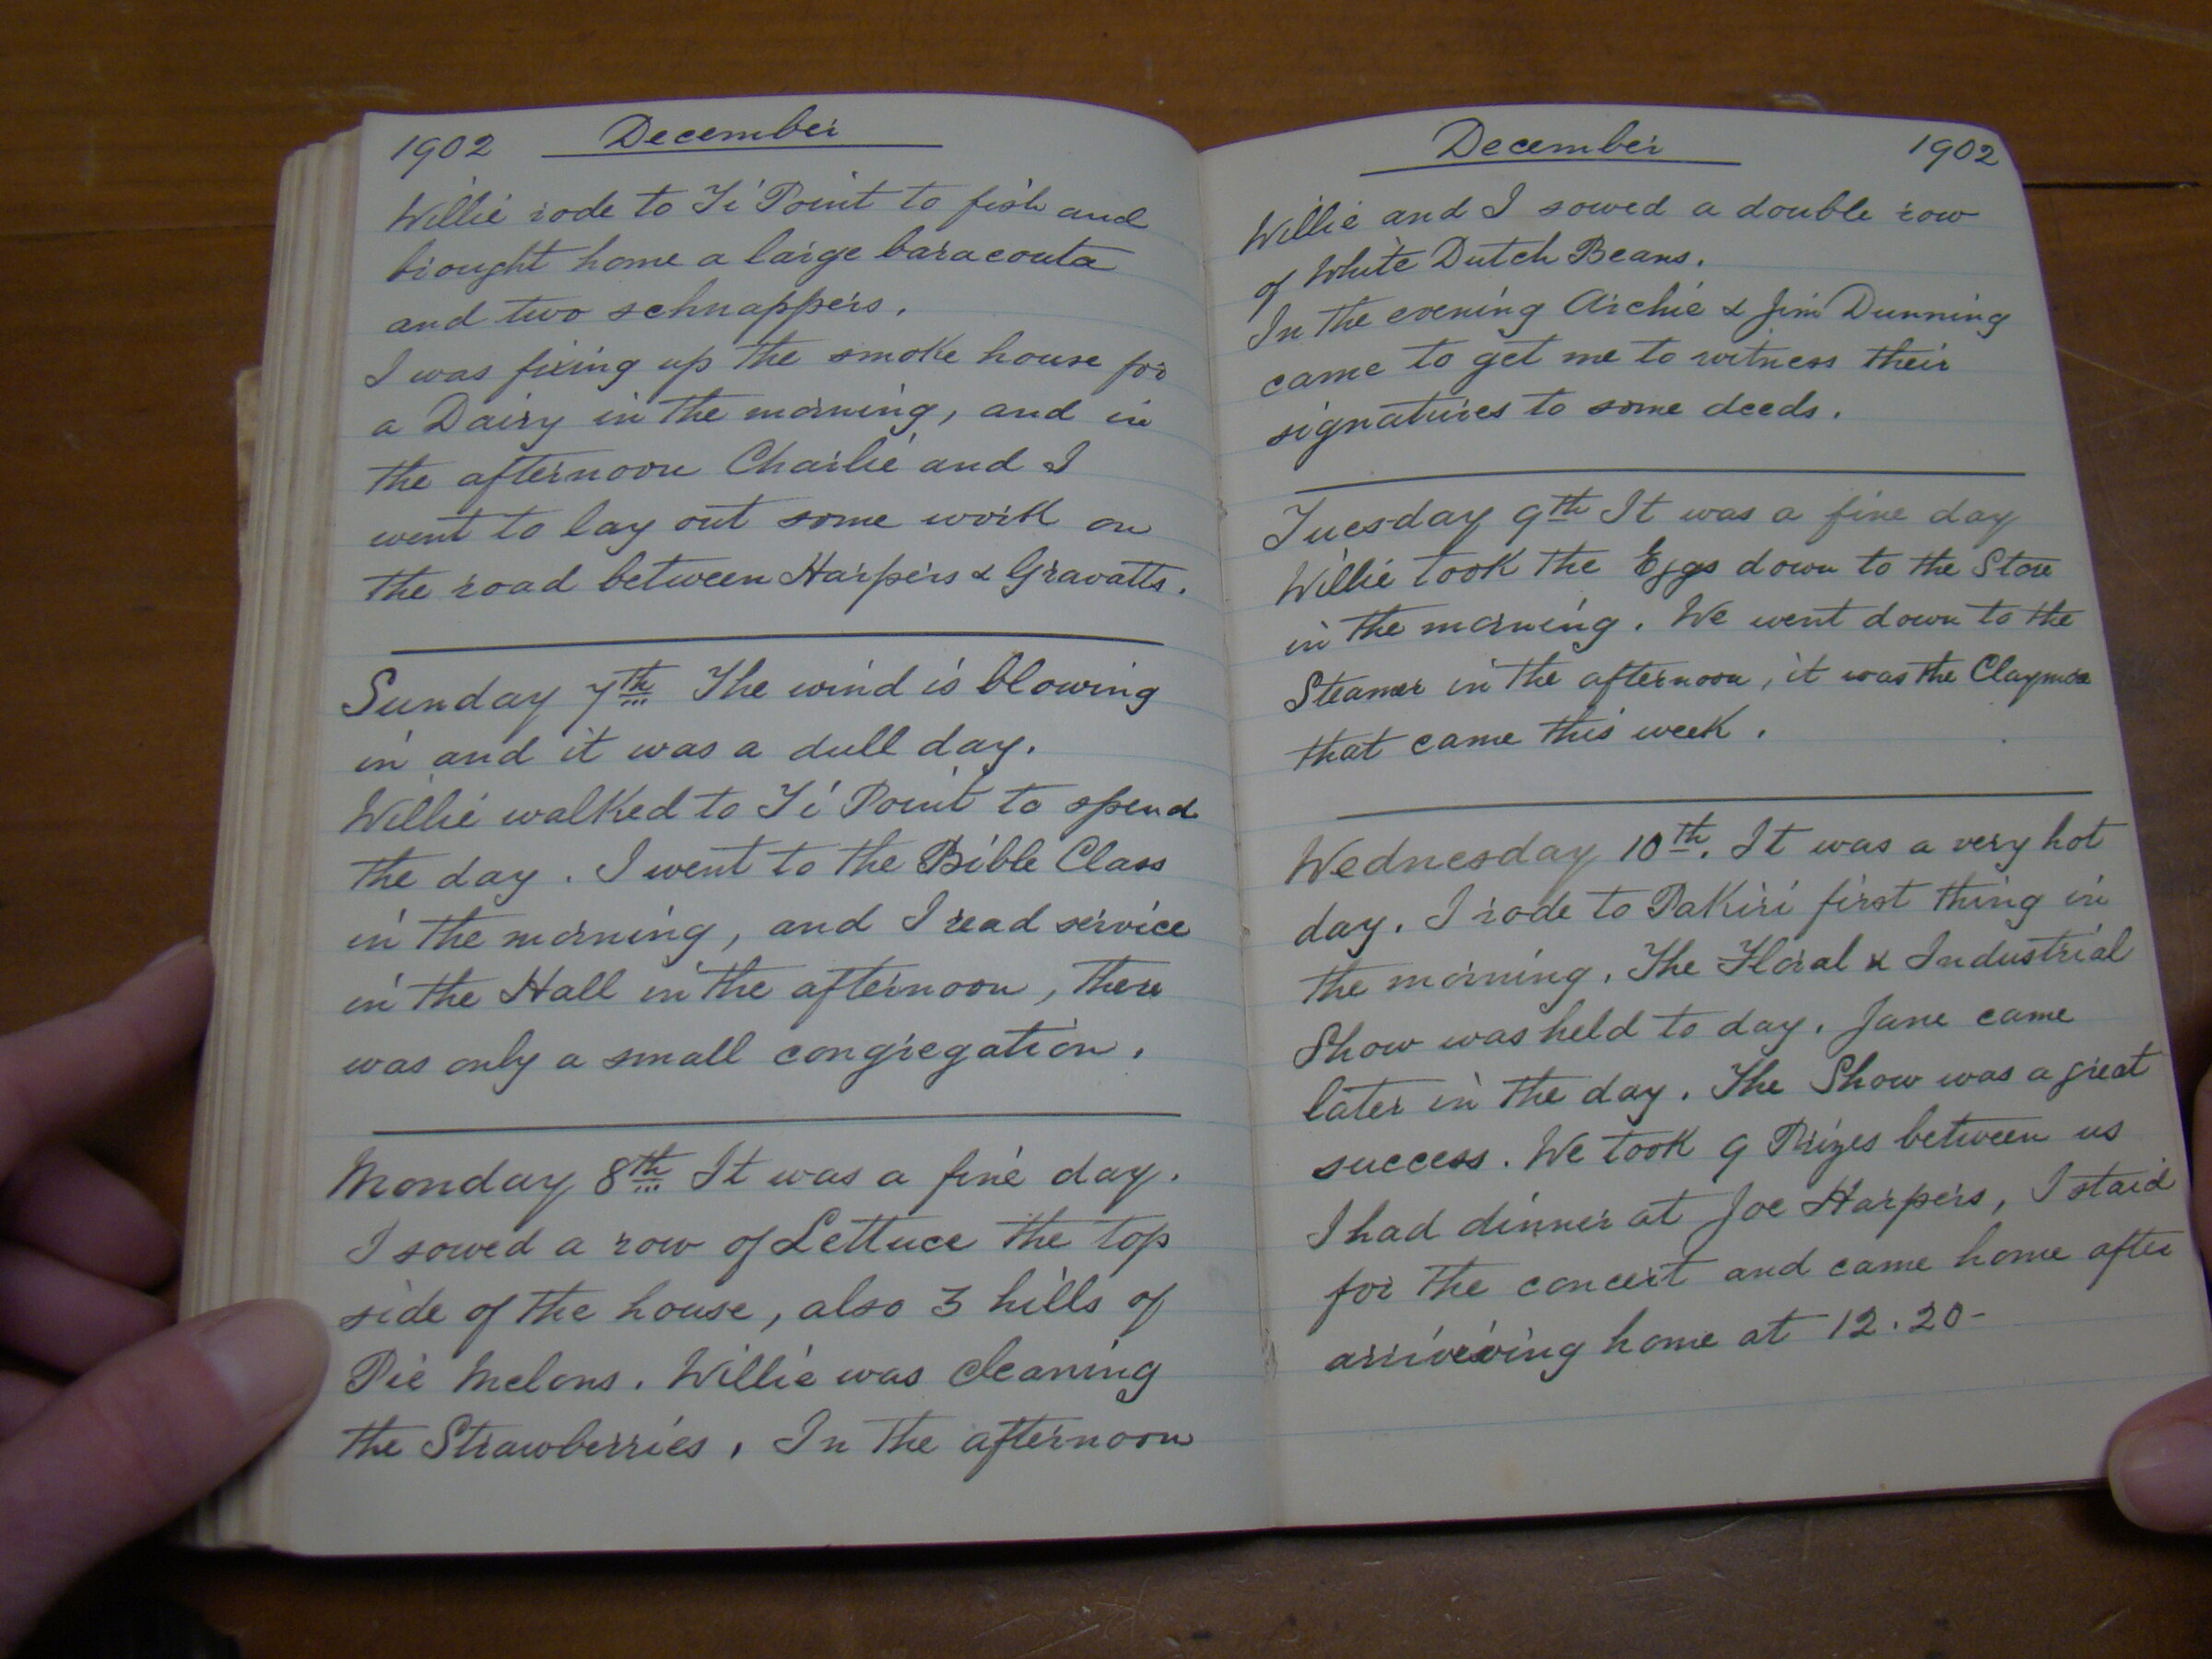 1902 December
Willie rode to Ti Point to fish and
brought home a large baracouta
and two schnappers.
I was fixing up the smoke house for
a Dairy in the morning, and in
the afternoon Charlie and I
went to lay out some work on
the road between Harpers & Gravatts.
Sunday 7th The wind is blowing
in and it was a dull day.
Willie walked to Ti Point to spend
the day. I went to the Bible Class
in the morning, and I read service
in the Hall in the afternoon, there
was only a small congregation.
Monday 8th It was a fine day.
I sowed a row of Lettuce the top
side of the house, also 3 hills of
Pie Melons. Willie was cleaning
the Strawberries. In the afternoon
December 1902
Willie and I sowed a double row
of White Dutch Beans.
In the evening Archie & Jim Dunning
came to get me to witness their
signatures to some deeds.
Tuesday 9th It was a fine day
Willie took the Eggs down to the Store
in the morning. We went down to the
Steamer in the afternoon, it was the Claymore
that came this week.
Wednesday 10th. It was a very hot
day. I rode to Pakiri first thing in
the morning. The Floral & Industrial
Show was held to day. Jane came
later in the day. The Show was a great
success. We took 9 Prizes between us
I had dinner at Joe Harpers, I staid
for the concert and came home after
arriveiving home at 12.20-